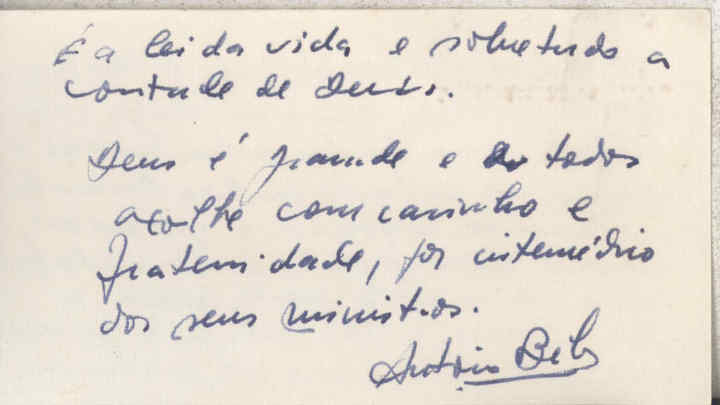 É a lei da vida e sobretudo a
vontade de Deus.
Deus é grande e a todos
acolhe com carinho e
fraternidade, por intermédio
dos seus ministros.
António